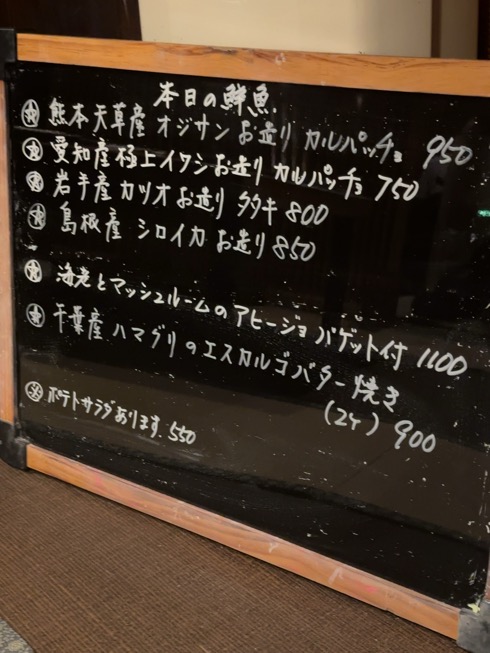 本日の鮮魚.
熊本天草産 オジサン お造り カルパッチョ 950
愛知産 極上イワシ お造り カルパッチョ 750
岩手産 カツオ お造り タタキ 800
島根産 シロイカ お造り 850
海老とマッシュルームのアヒージョ バゲット付 1100
千葉産 ハマグリのエスカルゴバター焼き
(2ケ) 900
ポテトサラダあります. 550